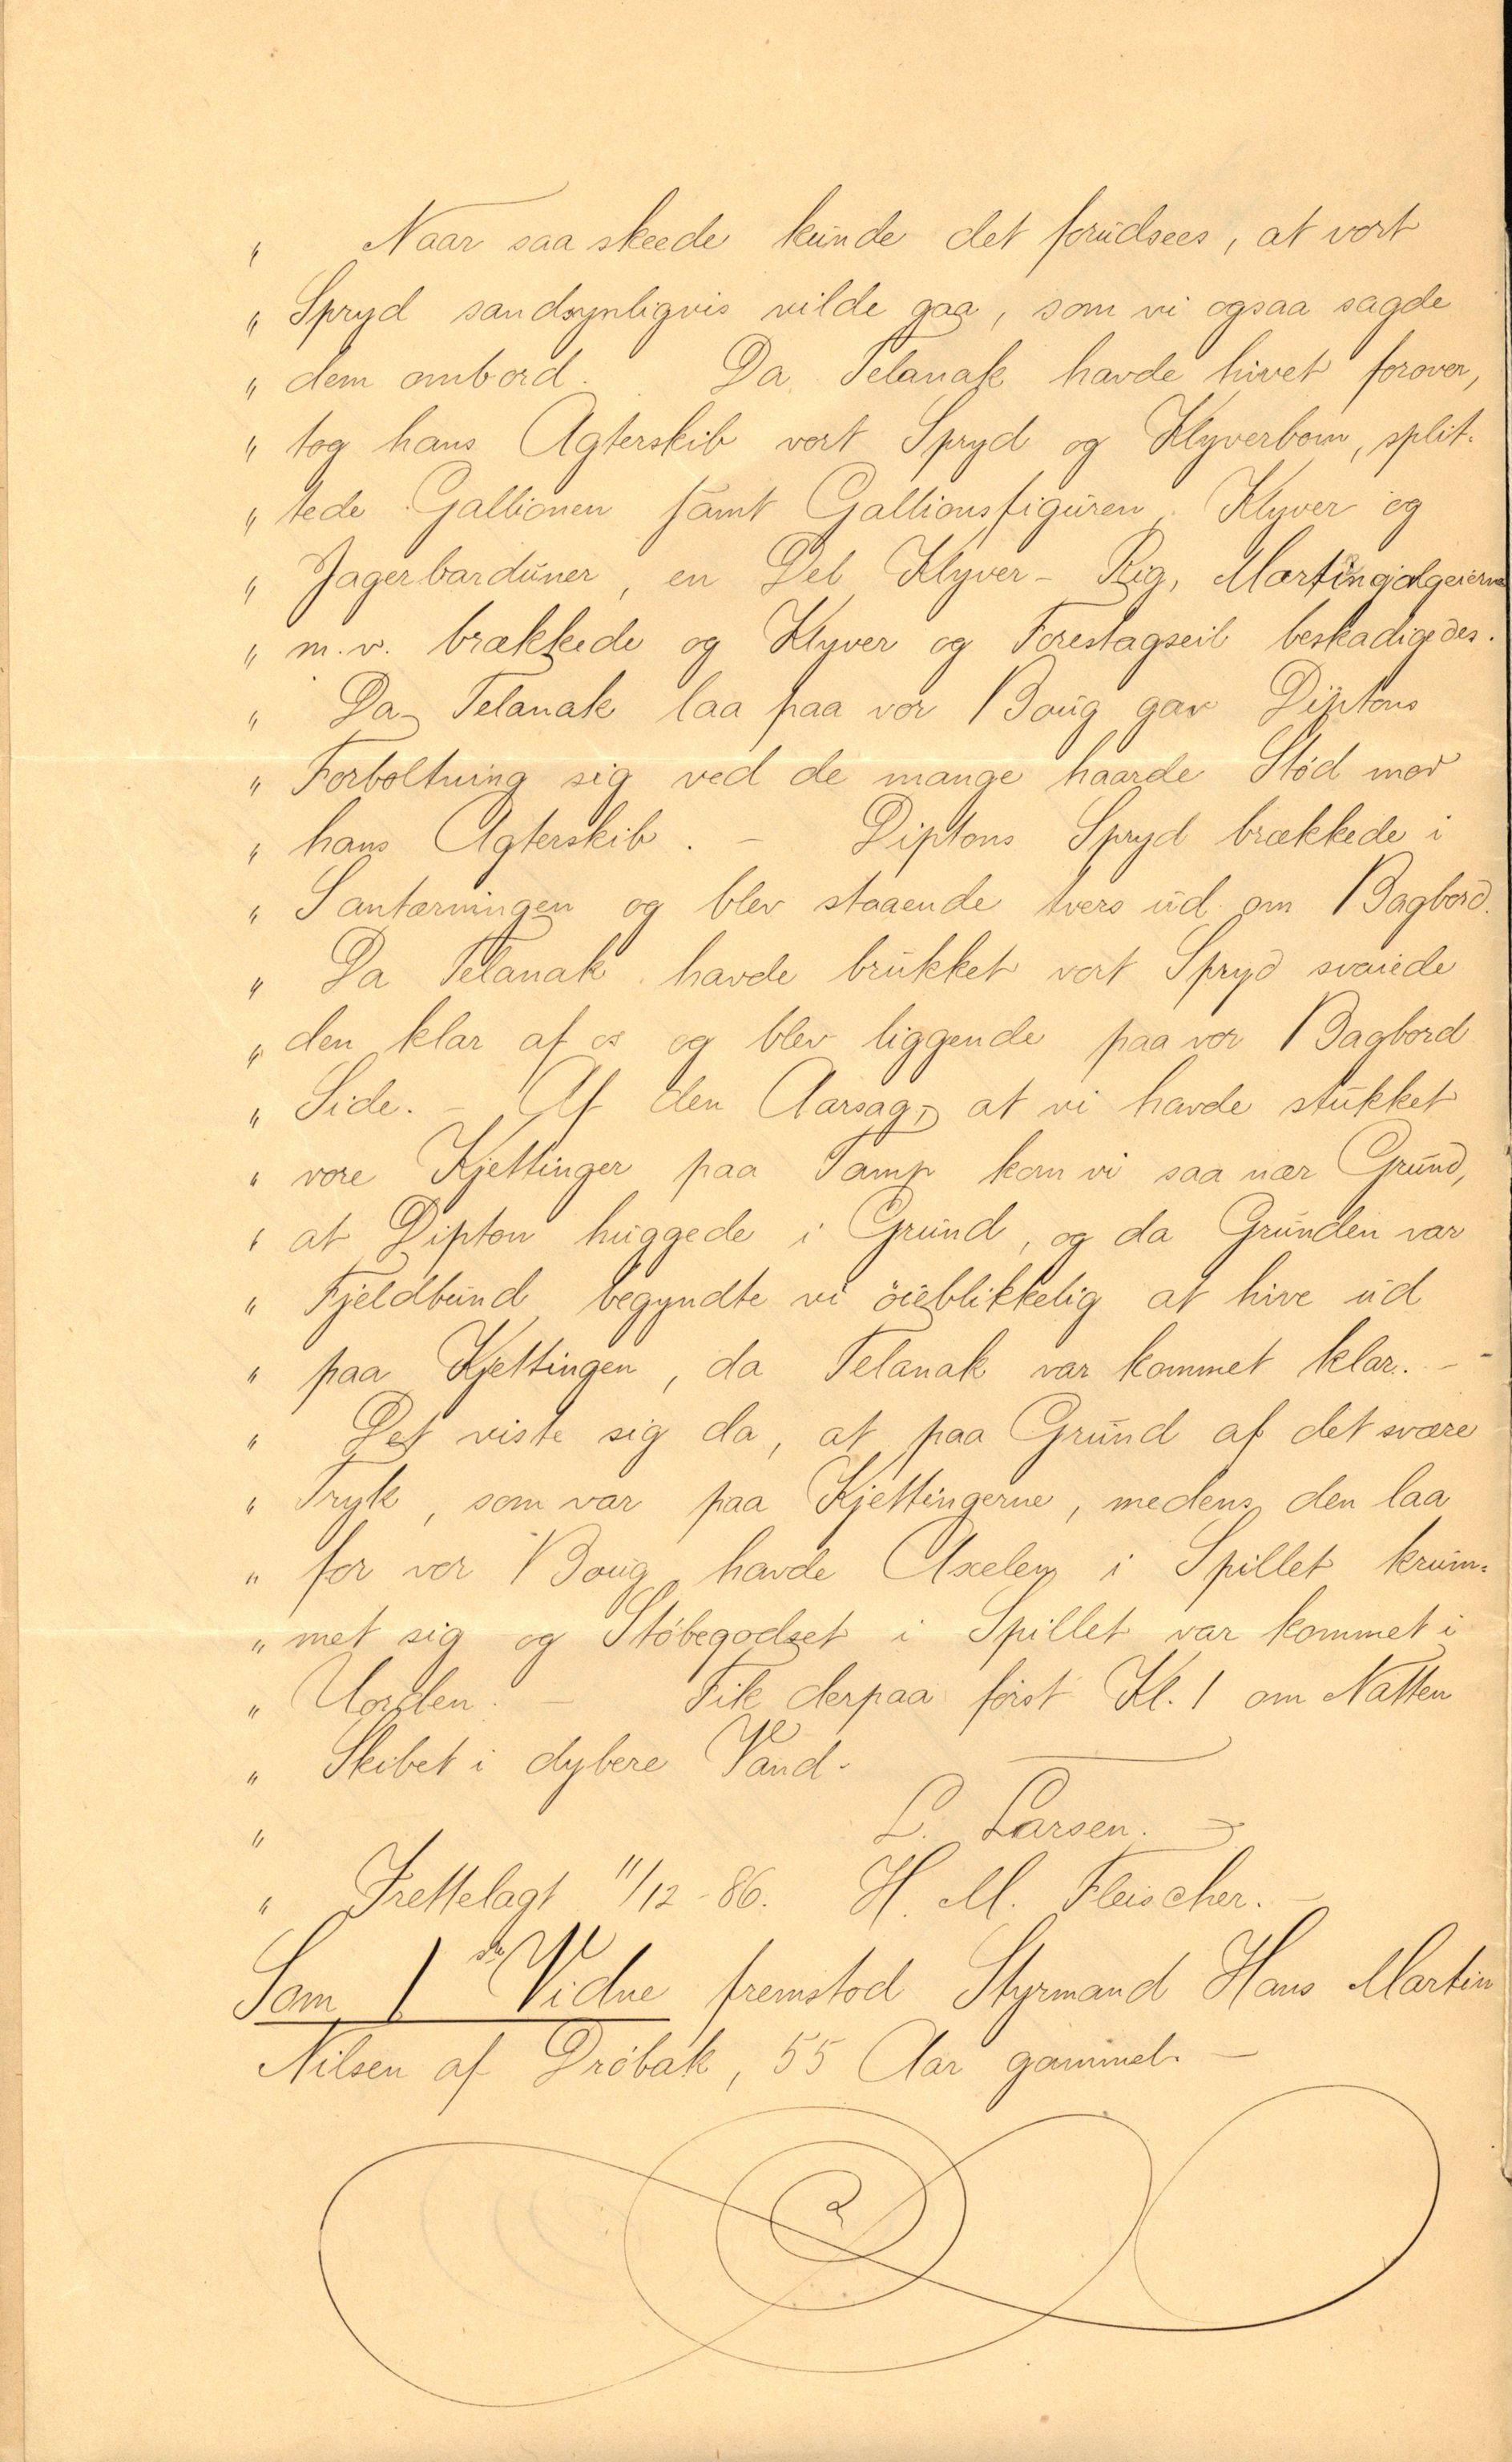 „ Naar saa skeede kunde det forudsees, at vort
„ Spryd sandsynligvis vilde gaa, som vi ogsaa sagde
„ dem ombord. Da Telanak havde hivet forover,
„ tog hans Agterskib vort Spryd og Klyverbom, split-
„ tede Gallionen samt Gallionsfiguren, Klyver og
„ Jagerbarduner, en Del Klyver-Rig, Martingalgeierne
„ m.v. brækkede og Klyver og Forestagseil beskadigedes.
„ Da Telanak laa paa vor Boug gav Diptons
„ Forboltning sig ved de mange haarde Stød mod
„ hans Agterskib. – Diptons Spryd brækkede i
„ Santørningen og blev staaende tvers ud om Bagbord.
„ Da Telanak havde brukket vort Spryd svaiede
„ den klar af os og blev liggende paa vor Bagbord
„ Side. – Af den Aarsag, at vi havde stukket
„ vore Kjettinger paa Tamp kom vi saa nær Grund,
„ at Dipton huggede i Grund, og da Grunden var
„ Fjeldbund begyndte vi öieblikkelig at hive ud
„ paa Kjettingen, da Telanak var kommet klar. –
„ Det viste sig da, at paa Grund af det svære
„ Tryk, som var paa Kjettingerne, medens den laa
„ for vor Boug havde Axelen i Spillet krum-
„ met sig og Støbegodset i Spillet var kommet i
„ Uorden. – Fik derpaa først Kl. 1 om Natten
„ Skibet i dybere Vand.
„ L. Larsen.
„ Irettelagt 11/12-86. H. M. Fleischer. –
Som 1ste Vidne fremstod Styrmand Hans Martin
Nilsen af Drøbak, 55 Aar gammel. –